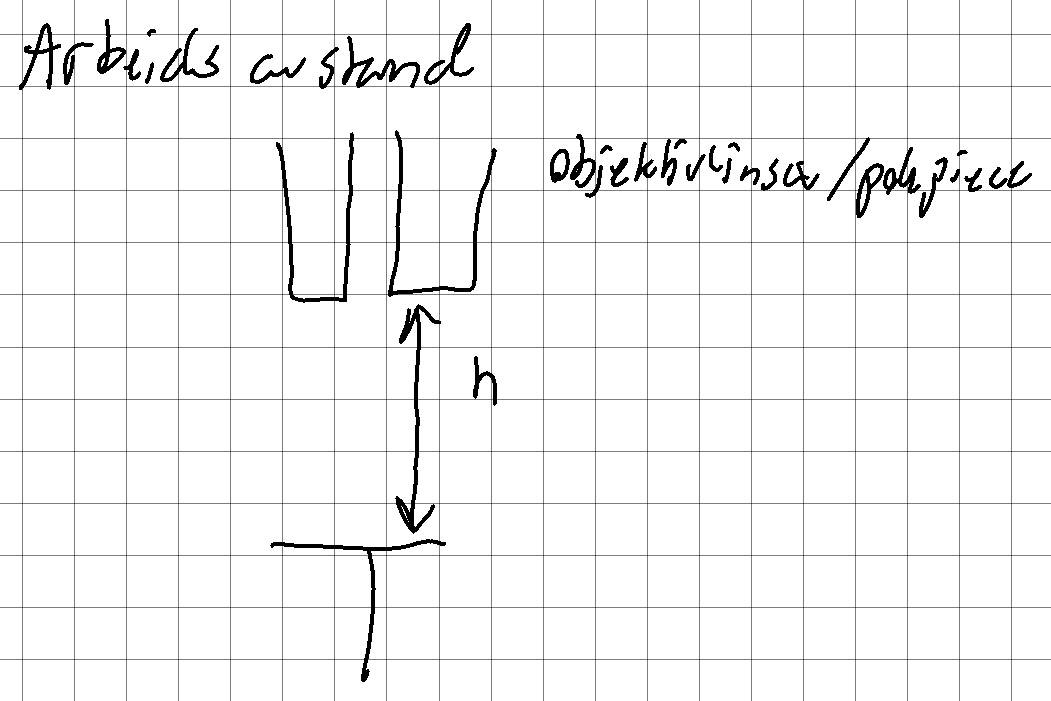 Arbeidsavstand
Objektivlinsa/polepiece
h